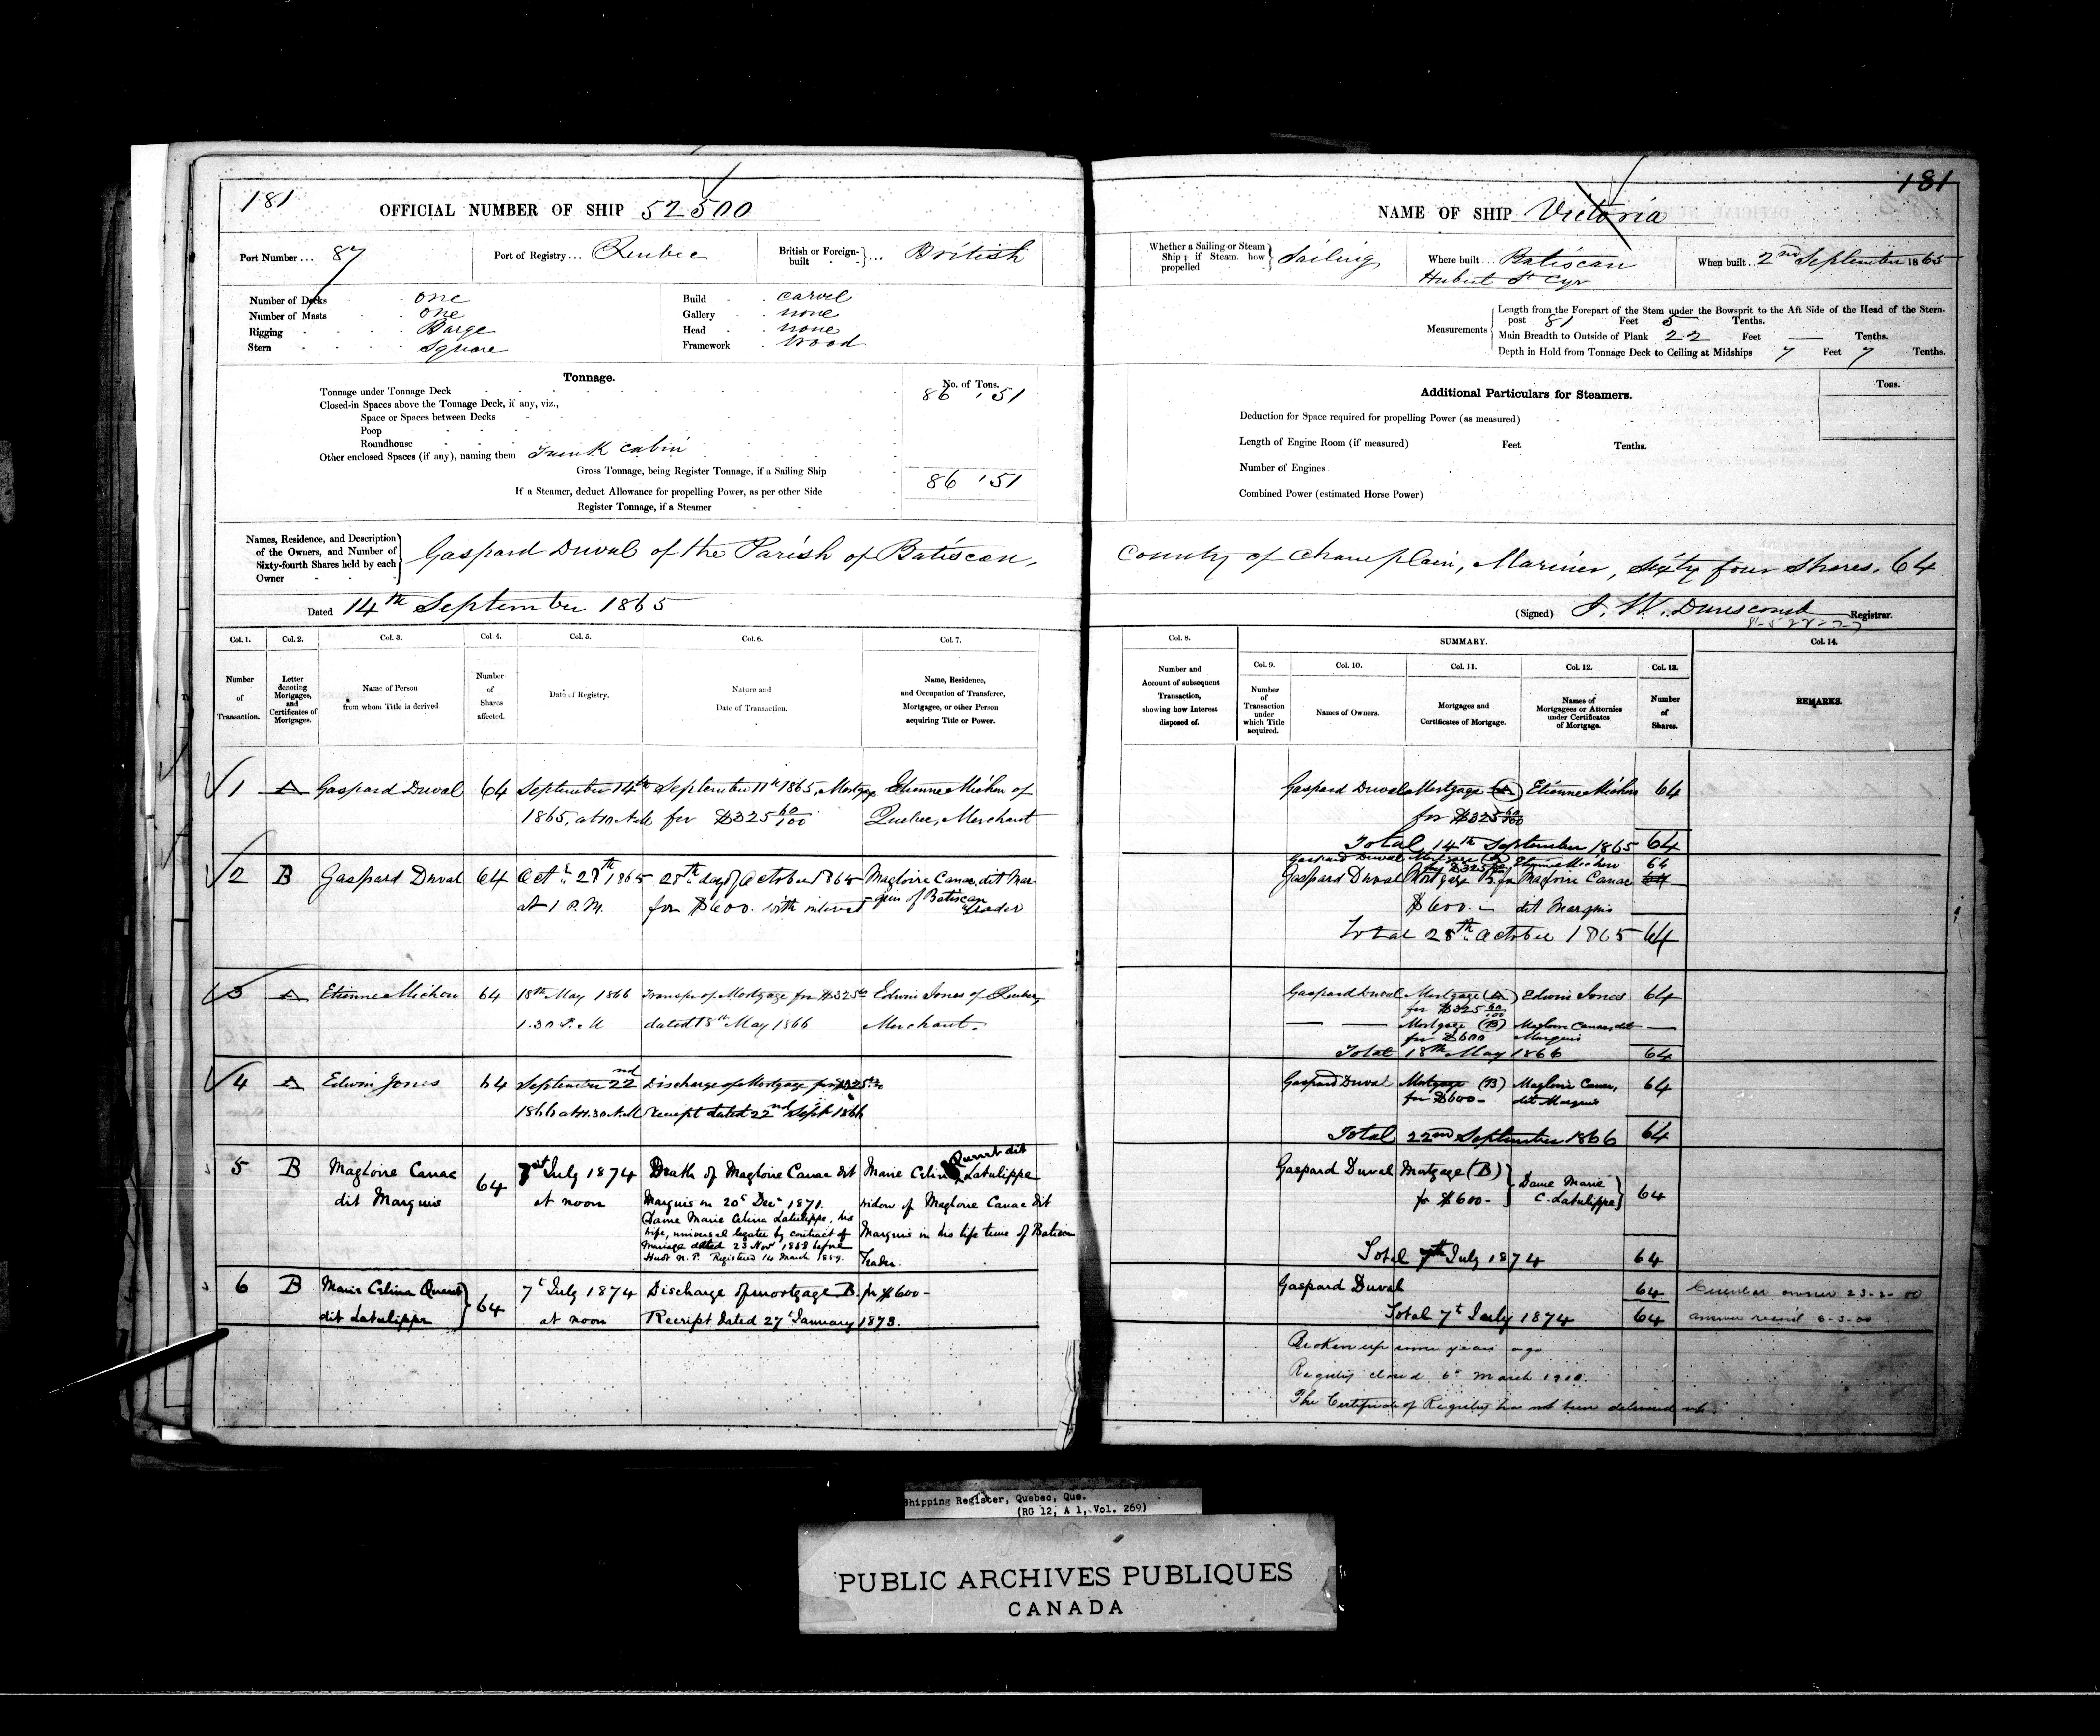 181
OFFICIAL NUMBER OF SHIP 52500
Port Number... 87
Port of Registry... Quebec
British or Foreign-built ... British
Number of Decks one
Number of Masts one
Rigging Barge
Stern Square
Build carvel
Gallery none
Head none
Framework wood
Tonnage.
No. of Tons.
Tonnage under Tonnage Deck 86 '51
Closed-in Spaces above the Tonnage Deck, if any, viz.,
Space or Spaces between Decks
Poop
Roundhouse
Other enclosed Spaces (if any), naming them Trunk cabin
Gross Tonnage, being Register Tonnage, if a Sailing Ship 86 '51
If a Steamer, deduct Allowance for propelling Power, as per other Side
Register Tonnage, if a Steamer
Names, Residence, and Description of the Owners, and Number of Sixty-fourth Shares held by each Owner
Gaspard Duval of the Parish of Batiscan,
Dated 14th September 1865
Col. 1. Col. 2. Col. 3. Col. 4. Col. 5. Col. 6. Col. 7.
Number of Transaction.
Letter denoting Mortgages, and Certificates of Mortgages.
Name of Person from whom Title is derived
Number of Shares affected.
Date of Registry.
Nature and Date of Transaction.
Name, Residence, and Occupation of Transferee, Mortgagee, or other Person acquiring Title or Power.
1 A Gaspard Duval 64 September 14th September 11th 1865, Mortgage Etienne Michon of
1865, at 10 A.M for $325 60/100 Quebec, Merchant
2 B Gaspard Duval 64 Oct. 28th 1865 28th day of October 1865 Magloire Canac, dit Mar-
at 1 P.M. for $600. with interest -quis of Batiscan
Trader
3 A Etienne Michon 64 18th May 1866 Transfer of Mortgage for $325 60 Edwin Jones of Quebec,
1.30 P.M dated 15th May 1866 Merchant.
4 A Edwin Jones 64 September 22nd Discharge of Mortgage for $325 60
1866 at 11.30 A.M receipt dated 22nd Sept. 1866
5 B Magloire Canac 64 7th July 1874 Death of Magloire Canac dit Marie Celina Quirat dit Latulippe
dit Marquis at noon Marquis on 20th Dec. 1871. widow of Magloire Canac dit
Dame Marie Celina Latulippe, his Marquis in his life time of Batiscan
wife, universal legatee by contract of Trader.
Marriage dated 23 Nov 1868 before
N.P. Registered 14 March 1869.
6 B Marie Celina 64 7th July 1874 Discharge of mortgage B. for $600-
dit Latulippe at noon Receipt dated 27th January 1873.
181
NAME OF SHIP Victoria
Whether a Sailing or Steam Ship; if Steam, how propelled Sailing
Where built... Batiscan
Hubert St Cyr
When built.. 2nd September 1865
Measurements
Length from the Forepart of the Stem under the Bowsprit to the Aft Side of the Head of the Stern-
post 81 Feet 5 Tenths.
Main Breadth to Outside of Plank 22 Feet — Tenths.
Depth in Hold from Tonnage Deck to Ceiling at Midships 7 Feet 7 Tenths.
Additional Particulars for Steamers.
Tons.
Deduction for Space required for propelling Power (as measured)
Length of Engine Room (if measured) Feet Tenths.
Number of Engines
Combined Power (estimated Horse Power)
County of Champlain, Mariner, Sixty four Shares. 64
(Signed) J. W. Dunscomb Registrar.
Col. 8. SUMMARY. Col. 14.
Col. 9. Col. 10. Col. 11. Col. 12. Col. 13.
Number and Account of subsequent Transaction, showing how Interest disposed of.
Number of Transaction under which Title acquired.
Names of Owners.
Mortgages and Certificates of Mortgage.
Names of Mortgagees or Attornies under Certificates of Mortgage.
Number of Shares.
REMARKS.
Gaspard Duval Mortgage (A) Etienne Michon 64
for $325 60/100
Total 14th September 1865 64
Gaspard Duval Mortgage (A) Etienne Michon 64
for $325 60
Gaspard Duval Mortgage B. for Magloire Canac 64
$600.- dit Marquis
Total 28th October 1865 64
Gaspard Duval Mortgage (A) Edwin Jones 64
for $325 60/100
— — Mortgage (B) Magloire Canac, dit —
for $600 Marquis
Total 18th May 1866 64
Gaspard Duval Mortgage (B) Magloire Canac, 64
for $600- dit Marquis
Total 22nd September 1866 64
Gaspard Duval Mortgage (B) Dame Marie 64
for $600- C. Latulippe
Total 7th July 1874 64
Gaspard Duval 64 owner 23-2-00
Total 7th July 1874 64 answer 6-3-00
Broken up some years ago
Registry closed 6th March 1900.
The Certificate of Registry has not been delivered up.
Shipping Register, Quebec, Que.
(RG 12, A 1, Vol. 269)
PUBLIC ARCHIVES PUBLIQUES
CANADA